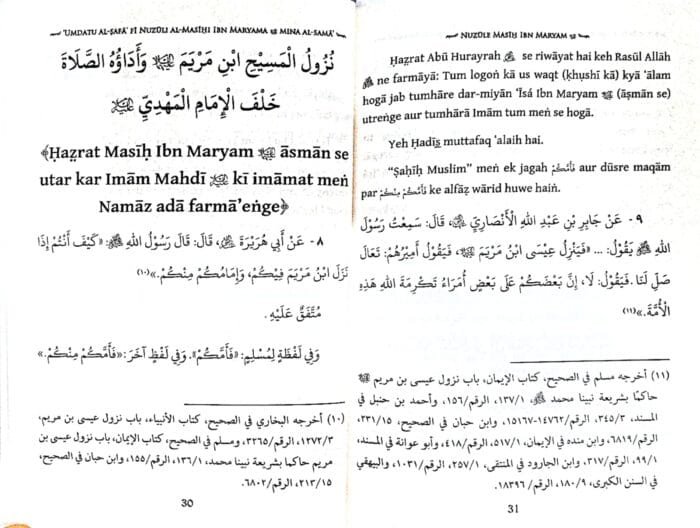 'UMDATU AL-ṢAFĀ' FĪ NUZŪLI AL-MASĪḤI IBN MARYAMA ؑ MINA AL-SAMĀ'
نُزُولُ الْمَسِيْحِ ابْنِ مَرْيَمَ ؑ وَأَدَاؤُهُ الصَّلَاةَ
خَلْفَ الْإِمَامِ الْمَهْدِيِّ ؑ
﴾Ḥaẓrat Masīḥ Ibn Maryam ؑ āsmān se
utar kar Imām Mahdī ؑ kī imāmat meṅ
Namāz adā farmā'enge﴿
٨- عَنْ أَبِي هُرَيْرَةَ ؓ، قَالَ: قَالَ رَسُوْلُ اللهِ ﷺ: «كَيْفَ أَنْتُمْ إِذَا
نَزَلَ ابْنُ مَرْيَمَ فِيْكُمْ، وَإِمَامُكُمْ مِنْكُمْ.»(١٠)
مُتَّفَقٌ عَلَيْهِ.
وَفِي لَفْظَةٍ لِمُسْلِمٍ: «فَأَمَّكُمْ». وَفِي لَفْظٍ آخَرَ: «فَأَمَّكُمْ مِنْكُمْ.»
(١٠) أخرجه البخاري في الصحيح، كتاب الأنبياء، باب نزول عيسى بن مريم،
١٢٧٢/٣، الرقم/٣٢٦٥، ومسلم في الصحيح، كتاب الإيمان، باب نزول عيسى بن
مريم حاكما بشريعة نبينا محمد، ١٣٦/١، الرقم/١٥٥، وابن حبان في الصحيح،
٢١٣/١٥، الرقم/٦٨٠٢.
30
NUZŪLE MASĪḤ IBN MARYAM ؑ
Ḥaẓrat Abū Hurayrah ؓ se riwāyat hai keh Rasūl Allāh
ﷺ ne farmāyā: Tum logoṅ kā us waqt (ḳhushī kā) kyā 'ālam
hogā jab tumhāre dar-miyān 'Īsá Ibn Maryam ؑ (āsmān se)
utrenge aur tumhārā Imām tum meṅ se hogā.
Yeh Ḥadīs̱ muttafaq 'alaih hai.
“Ṣaḥīḥ Muslim” meṅ ek jagah فَأَمَّكُمْ aur dūsre maqām
par فَأَمَّكُمْ مِنْكُمْ ke alfāz̤ wārid huwe haiṅ.
٩- عَنْ جَابِرِ بْنِ عَبْدِ اللهِ الْأَنْصَارِيِّ ؓ، قَالَ: سَمِعْتُ رَسُوْلَ
اللهِ ﷺ يَقُوْلُ: ... «فَيَنْزِلُ عِيْسَى ابْنُ مَرْيَمَ ؑ، فَيَقُوْلُ أَمِيْرُهُمْ: تَعَالَ
صَلِّ لَنَا. فَيَقُوْلُ: لَا، إِنَّ بَعْضَكُمْ عَلَى بَعْضٍ أُمَرَاءُ تَكْرِمَةَ اللهِ هَذِهِ
الْأُمَّةَ.»(١١)
(١١) أخرجه مسلم في الصحيح، كتاب الإيمان، باب نزول عيسى بن مريم ؑ
حاكمًا بشريعة نبينا محمد ﷺ، ١٣٧/١، الرقم/١٥٦، وأحمد بن حنبل في
المسند، ٣٤٥/٣، الرقم/١٤٧٦٢-١٥١٦٧، وابن حبان في الصحيح، ٢٣١/١٥،
الرقم/٦٨١٩، وابن منده في الإيمان، ٥١٧/١، الرقم/٤١٨، وأبو عوانة في المسند،
٩٩/١، الرقم/٣١٧، وابن الجارود في المنتقى، ٢٥٧/١، الرقم/١٠٣١، والبيهقي
في السنن الكبرى، ١٨٠/٩، الرقم/١٨٣٩٦.
31